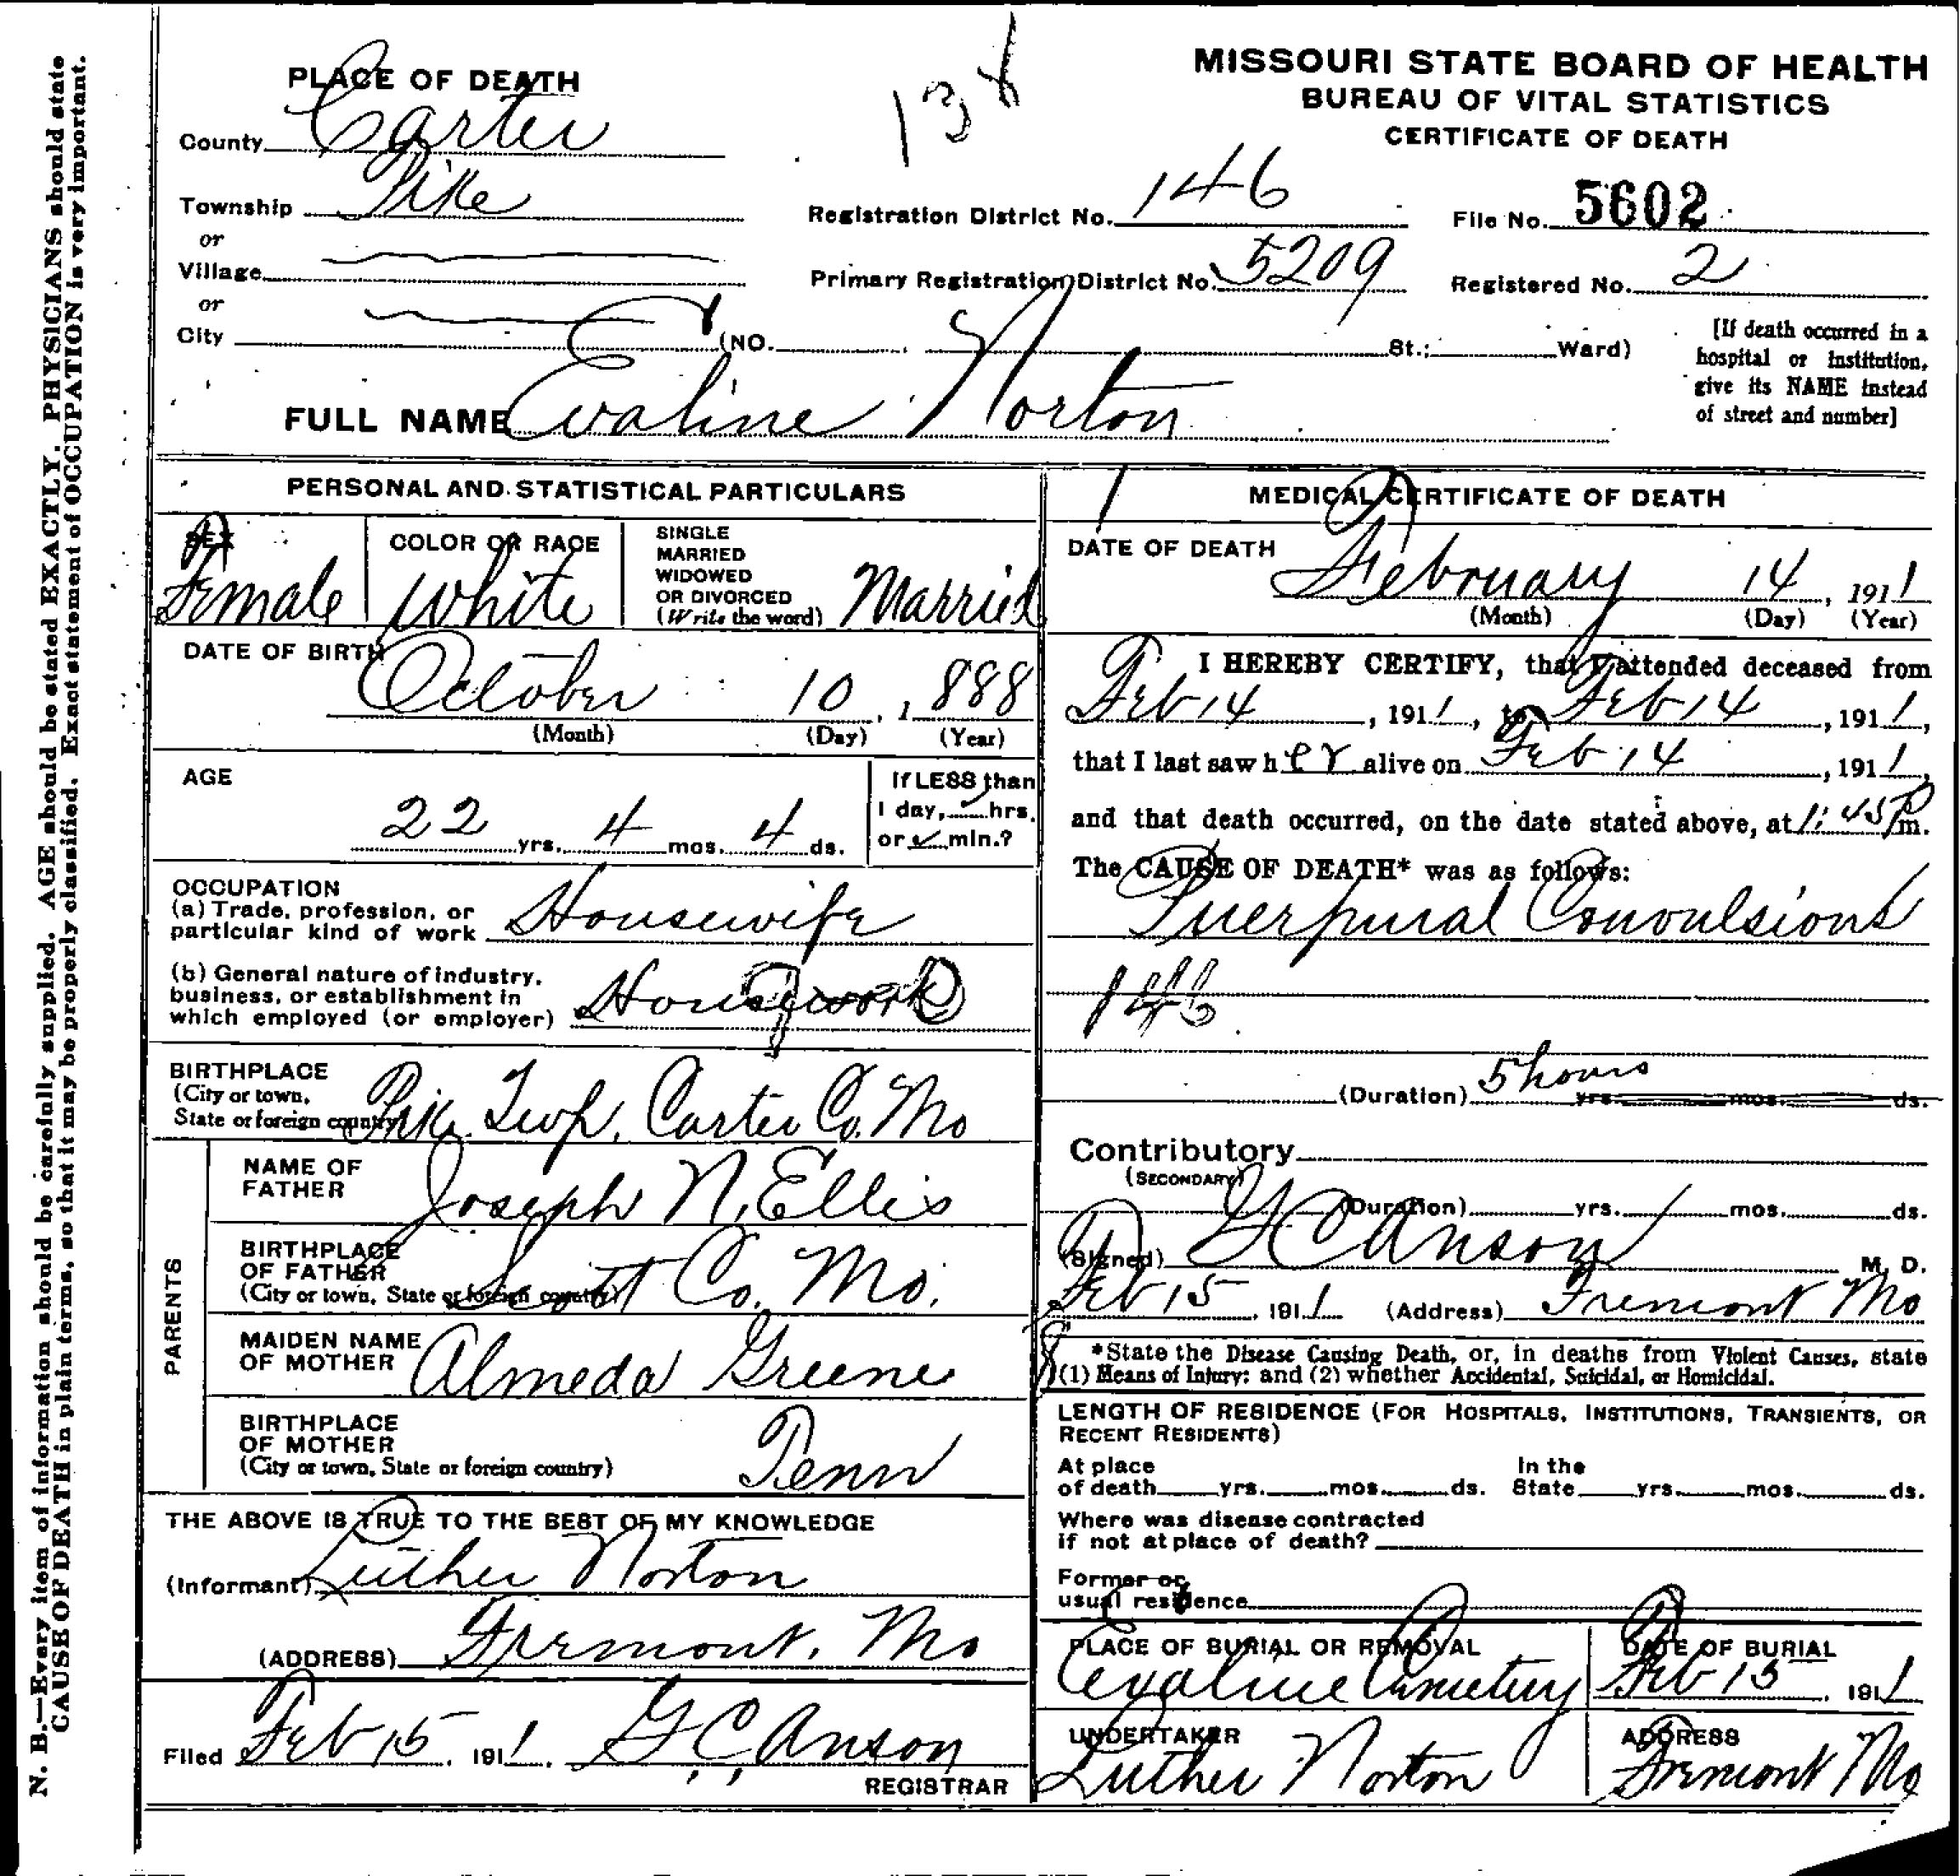 N. B.—Every item of information should be carefully supplied. AGE should be stated EXACTLY. PHYSICIANS should state
CAUSE OF DEATH in plain terms, so that it may be properly classified. Exact statement of OCCUPATION is very important.
MISSOURI STATE BOARD OF HEALTH
BUREAU OF VITAL STATISTICS
CERTIFICATE OF DEATH
PLACE OF DEATH
County Carter
Township Pike
or
Village
or
City (NO. St.; Ward)
Registration District No. 146 File No. 5602
Primary Registration District No. 5209 Registered No. 2
[If death occurred in a
hospital or institution,
give its NAME instead
of street and number]
FULL NAME Evaline Norton
PERSONAL AND STATISTICAL PARTICULARS
SEX
Female
COLOR OR RACE
White
SINGLE
MARRIED
WIDOWED
OR DIVORCED
(Write the word) Married
DATE OF BIRTH
October 10, 1888
(Month) (Day) (Year)
AGE
22 yrs. 4 mos. 4 ds.
If LESS than
1 day, hrs.
or min.?
OCCUPATION
(a) Trade, profession, or
particular kind of work Housewife
(b) General nature of industry,
business, or establishment in
which employed (or employer) Housework
BIRTHPLACE
(City or town,
State or foreign country) Pike Twp. Carter Co. Mo
PARENTS
NAME OF
FATHER Joseph N. Ellis
BIRTHPLACE
OF FATHER
(City or town, State or foreign country) Scott Co. Mo.
MAIDEN NAME
OF MOTHER Almeda Greene
BIRTHPLACE
OF MOTHER
(City or town, State or foreign country) Tenn
THE ABOVE IS TRUE TO THE BEST OF MY KNOWLEDGE
(Informant) Luther Norton
(ADDRESS) Fremont, Mo
Filed Feb 15, 1911. G C Anson
REGISTRAR
MEDICAL CERTIFICATE OF DEATH
DATE OF DEATH
February 14, 1911
(Month) (Day) (Year)
I HEREBY CERTIFY, that I attended deceased from
Feb 14, 1911, to Feb 14, 1911,
that I last saw her alive on Feb 14, 1911,
and that death occurred, on the date stated above, at 1:45 P m.
The CAUSE OF DEATH* was as follows:
Puerpural Convulsions
146
(Duration) 5 hours yrs. mos. ds.
Contributory
(SECONDARY)
(Duration) yrs. mos. ds.
(Signed) G C Anson M. D.
Feb 15, 1911 (Address) Fremont Mo
*State the Disease Causing Death, or, in deaths from Violent Causes, state
(1) Means of Injury; and (2) whether Accidental, Suicidal, or Homicidal.
LENGTH OF RESIDENCE (FOR HOSPITALS, INSTITUTIONS, TRANSIENTS, OR
RECENT RESIDENTS)
At place In the
of death yrs. mos. ds. State yrs. mos. ds.
Where was disease contracted
if not at place of death?
Former or
usual residence
PLACE OF BURIAL OR REMOVAL
Evaline Cemetery
DATE OF BURIAL
Feb 15, 1911
UNDERTAKER
Luther Norton
ADDRESS
Fremont Mo